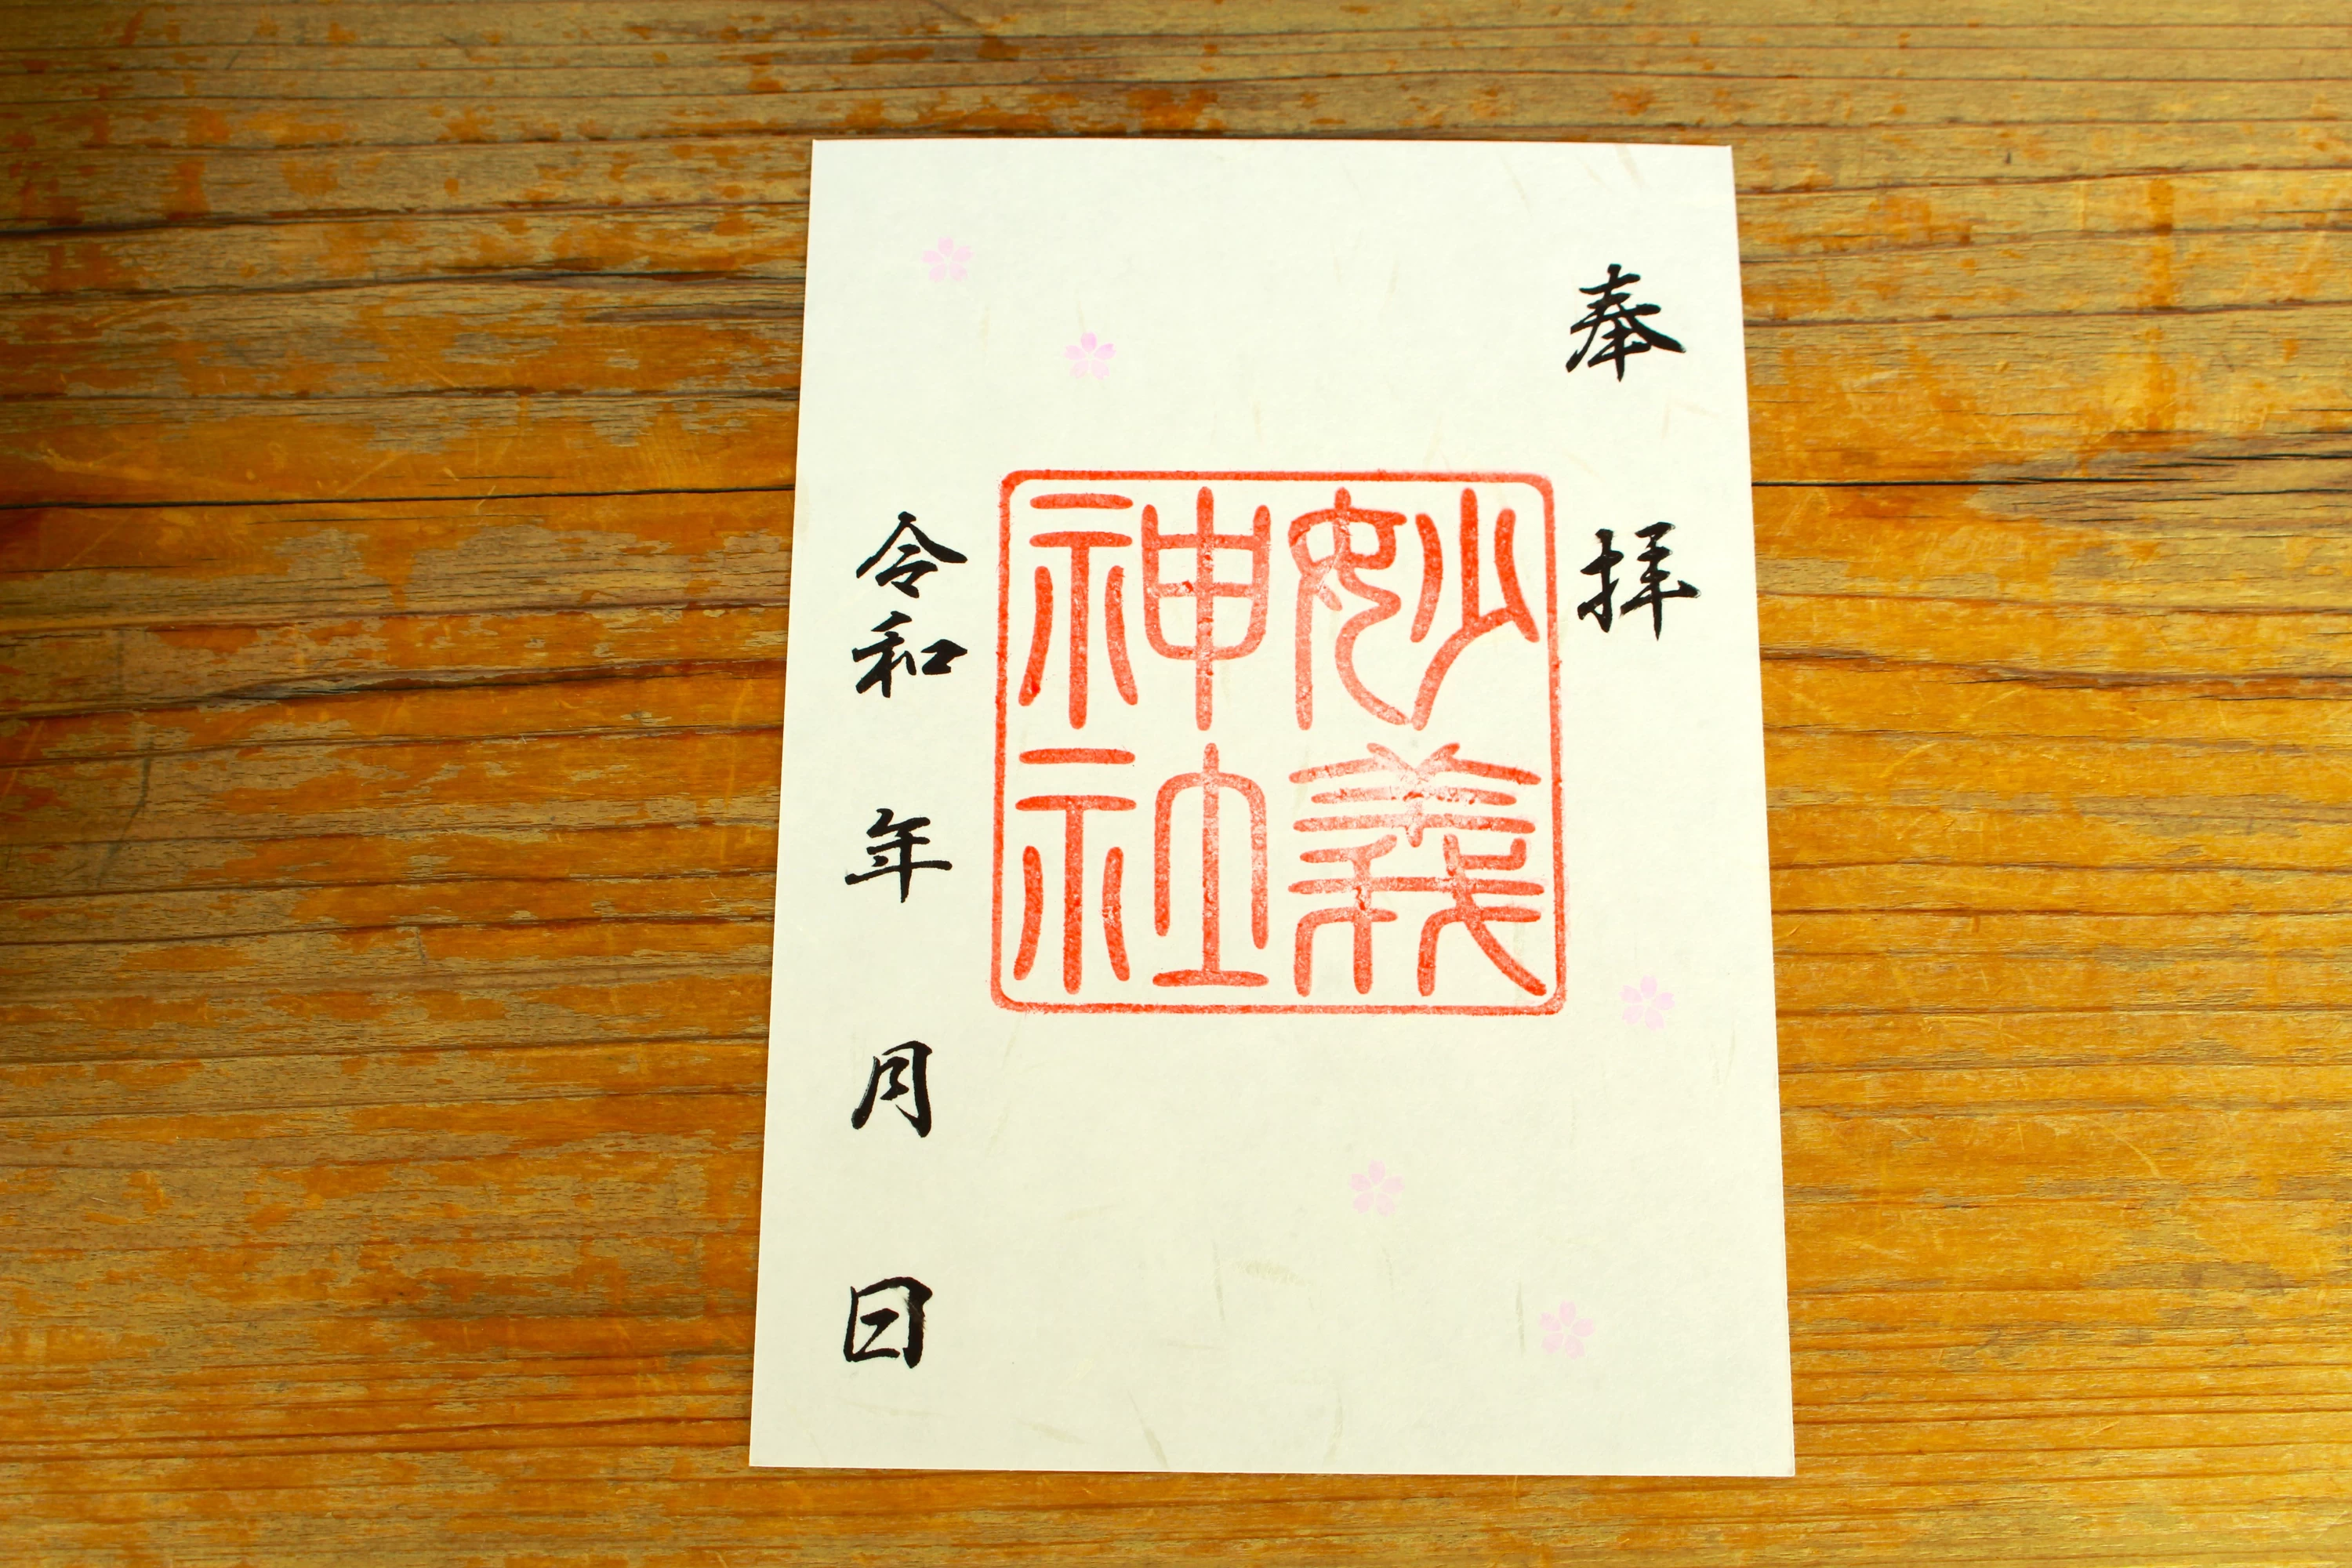 奉拝
妙義
神社
令和 年 月 日